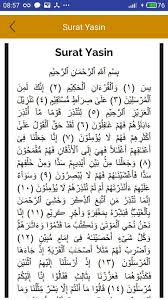 08:57
4G
76
Surat Yasin
Surat Yasin
بِسْمِ اللَّهِ الرَّحْمَنِ الرَّحِيمِ
يس (١) وَالْقُرْآنِ الْحَكِيمِ (٢) إِنَّكَ لَمِنَ
الْمُرْسَلِينَ (٣) عَلَى صِرَاطٍ مُسْتَقِيمٍ (٤) تَنْزِيلَ
الْعَزِيزِ الرَّحِيمِ (٥) لِتُنْذِرَ قَوْمًا مَا أُنْذِرَ
ءَابَاؤُهُمْ فَهُمْ غَافِلُونَ (٦) لَقَدْ حَقَّ الْقَوْلُ عَلَى
أَكْثَرِهِمْ فَهُمْ لَا يُؤْمِنُونَ (٧) إِنَّا جَعَلْنَا فِي
أَعْنَاقِهِمْ أَغْلَالًا فَهِيَ إِلَى الْأَذْقَانِ فَهُمْ مُقْمَحُونَ
(٨) وَجَعَلْنَا مِنْ بَيْنِ أَيْدِيهِمْ سَدًّا وَمِنْ خَلْفِهِمْ
سَدًّا فَأَغْشَيْنَاهُمْ فَهُمْ لَا يُبْصِرُونَ (٩) وَسَوَاءٌ
عَلَيْهِمْ ءَأَنْذَرْتَهُمْ أَمْ لَمْ تُنْذِرْهُمْ لَا يُؤْمِنُونَ
(١٠) إِنَّمَا تُنْذِرُ مَنِ اتَّبَعَ الذِّكْرَ وَخَشِيَ الرَّحْمَنَ
بِالْغَيْبِ فَبَشِّرْهُ بِمَغْفِرَةٍ وَأَجْرٍ كَرِيمٍ (١١) إِنَّا
نَحْنُ نُحْيِي الْمَوْتَى وَنَكْتُبُ مَا قَدَّمُوا وَءَاثَارَهُمْ
وَكُلَّ شَيْءٍ أَحْصَيْنَاهُ فِي إِمَامٍ مُبِينٍ (١٢)
وَاضْرِبْ لَهُمْ مَثَلًا أَصْحَابَ الْقَرْيَةِ إِذْ جَاءَهَا
الْمُرْسَلُونَ (١٣) إِذْ أَرْسَلْنَا إِلَيْهِمُ اثْنَيْنِ
فَكَذَّبُوهُمَا فَعَزَّزْنَا بِثَالِثٍ فَقَالُوا إِنَّا إِلَيْكُمْ